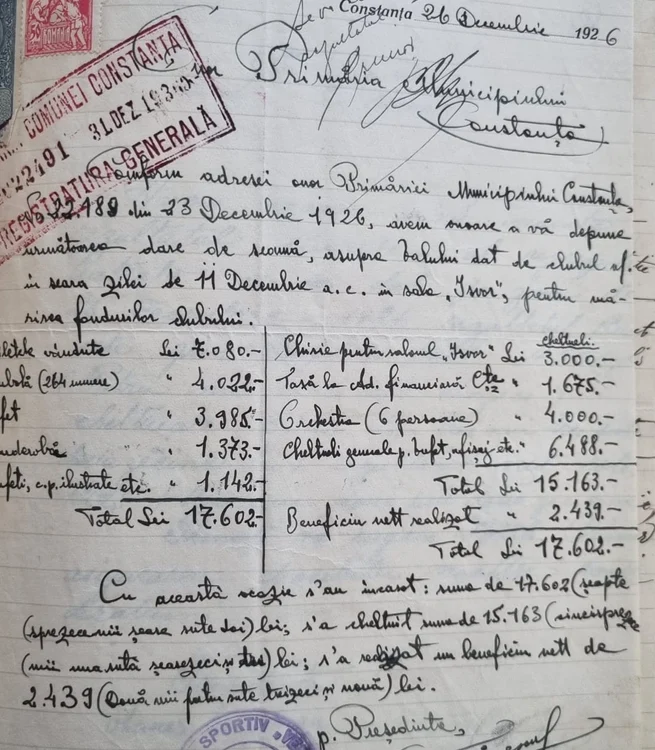 Constanța 26 Decembrie 1926
Primăria Municipiului
Constanța
COMUNEI CONSTANȚA
31.DEZ
22491
REGISTRATURA GENERALĂ
50
Conform adresei onor Primăriei Municipiului Constanța,
22189 din 23 Decembrie 1926, avem onoare a vă depune
următoarea dare de seamă, asupra balului dat de clubul
în seara zilei de 11 Decembrie a.c. in sala „Isvor", pentru mă-
rirea fondurilor clubului.
vândute Lei 7.080.-
(264 numere) " 4.022.-
" 3.985.-
" 1.373.-
c.p. ilustrate etc. " 1.142.-
Total Lei 17.602.-
cheltueli.
Chirie pentru salonul „Isvor" Lei 3.000.-
Taxă la Ad. financiară Cța " 1.675.-
Orchestra (6 persoane) " 4.000.-
Cheltueli generale p. bufet, afișaj etc. " 6.488.-
Total Lei 15.163.-
Beneficiu nett realizat " 2.439.-
Total Lei 17.602.-
Cu această ocazie s'au incasat: suma de 17.602 (șeapte
(sprezece mii șease sute doi) lei; s'a cheltuit suma de 15.163 (cincisprezece
(mii una sută șeasezeci și trei) lei; s'a realizat un beneficiu nett de
2.439 (Două mii patru sute treizeci și nouă) lei.
p. Președinte,
SPORTIV